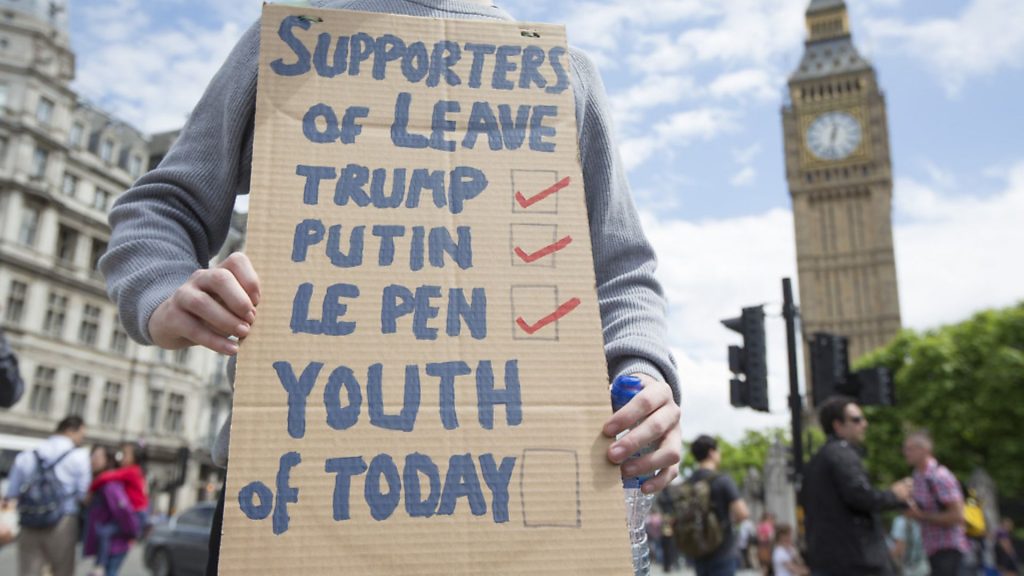 SUPPORTERS
OF LEAVE
TRUMP
PUTIN
LE PEN
YOUTH
of TODAY